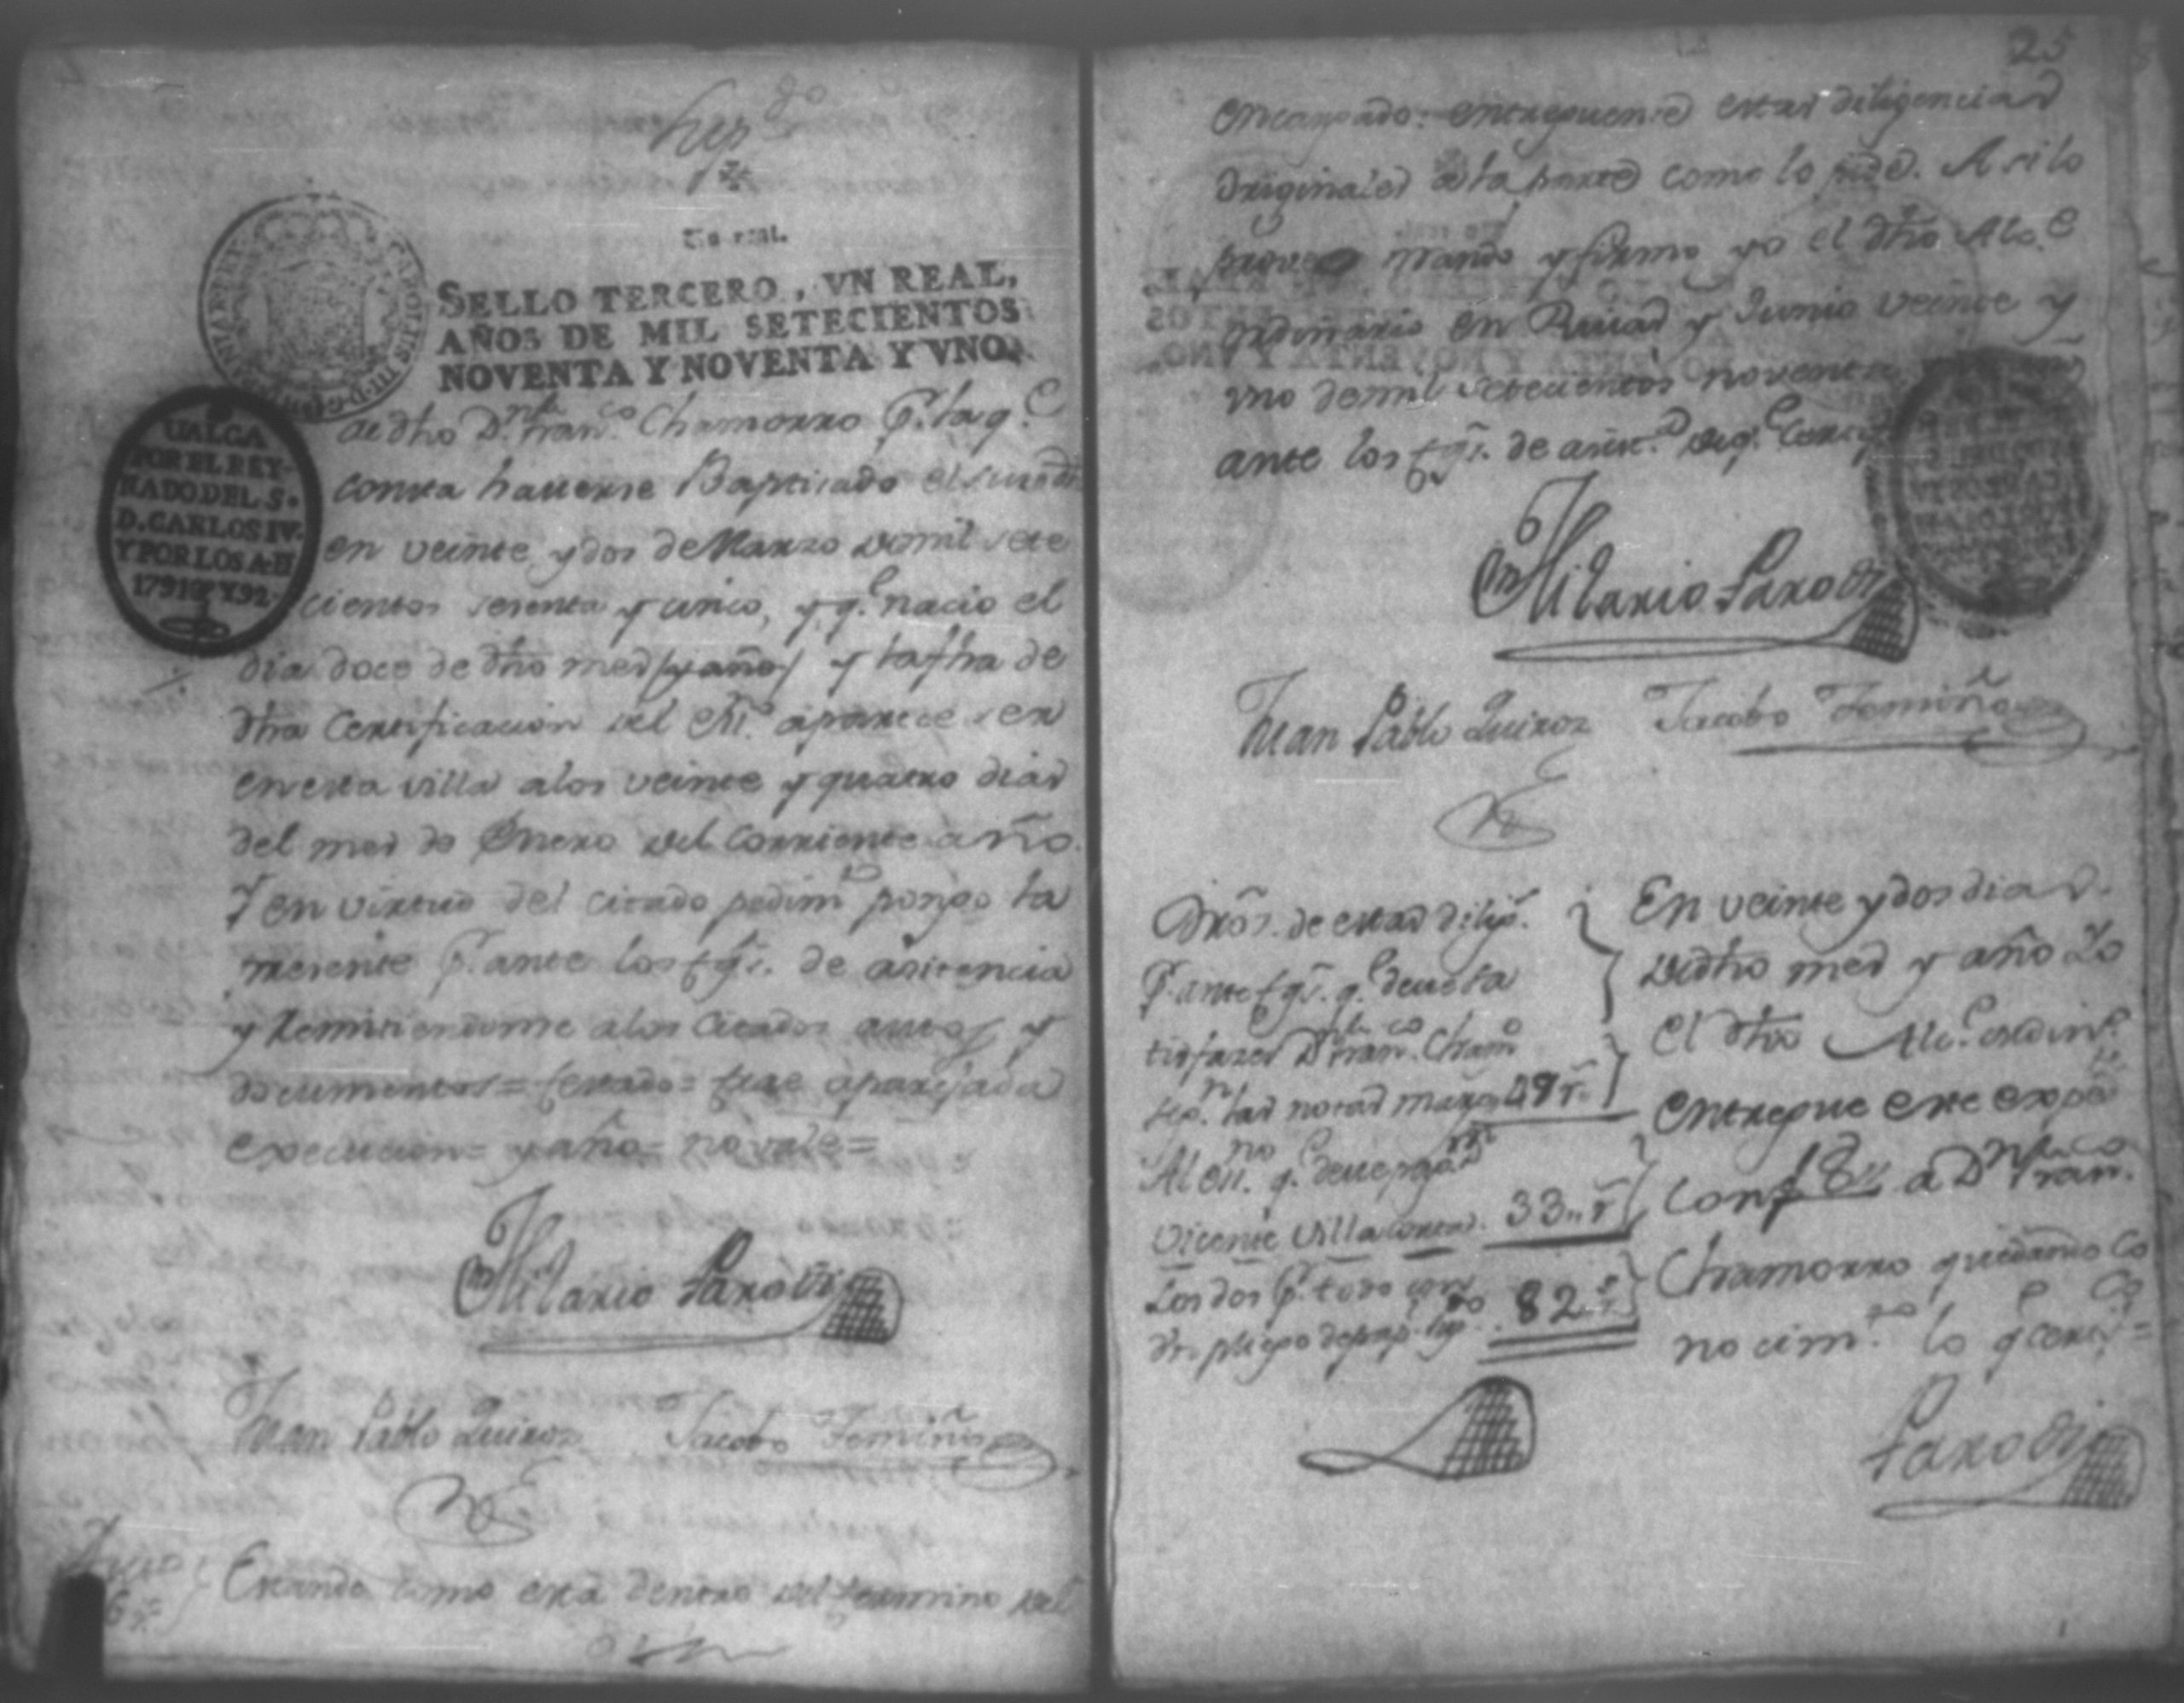 Vn real.
SELLO TERCERO, VN REAL,
AÑOS DE MIL SETECIENTOS
NOVENTA Y NOVENTA Y VNO.
UALGA
POR EL REY-
NADO DEL S.
D. CARLOS IV.
Y POR LOS A. D
1791 Y 92
de dho Dn. Franco. Chamorro pr. la qe.
consta haverse Baptisado el
en veinte y dos de Marzo de mil sete
cientos sesenta y cinco, y qe nacio el
dia doce de dho mes /y año/ y la fha de
dha Certificacion del Mo. aparece ser
en esta villa a los veinte y quatro dias
del mes de Enero del corriente año.
Y en virtud del citado pedimto pongo la
presente pr. ante los tgs. de asistencia
y Remitiendome a los citados autos y
documentos = testado = trae aparejada
execucion = y año = no vale =
Hilario Parodi
Juan Pablo Quiroz Jacobo Femiño
Estando como está dentro del termino del
25
encargado: entreguense estas diligencias
Originales a la parte como lo pide. Asi lo
mando y firmo yo el dho Alce
ordinario en Rivas y Junio veinte y
uno de mil setecientos noventa
ante los tgs. de asista. de qe.
Hilario Parodi
Juan Pablo Quiroz Jacobo Femiño
Dros. de estas diligs.
pr. ante tgs. qe. deve sa
tisfazer Dn. Franco. Chamo
segn. las notas 49 rs.
Al esno. qe. deve pagar
Vicente Villa 33 rs
Los dos pr. todo con
un pliego de pap. 82 rs
En veinte y dos dias
de dho mes y año Yo
el dho Alce. ordino.
entregue este expte
con f 8 us a Dn Franco.
Chamorro quedando co
nocimto. lo qe certco =
Parodi